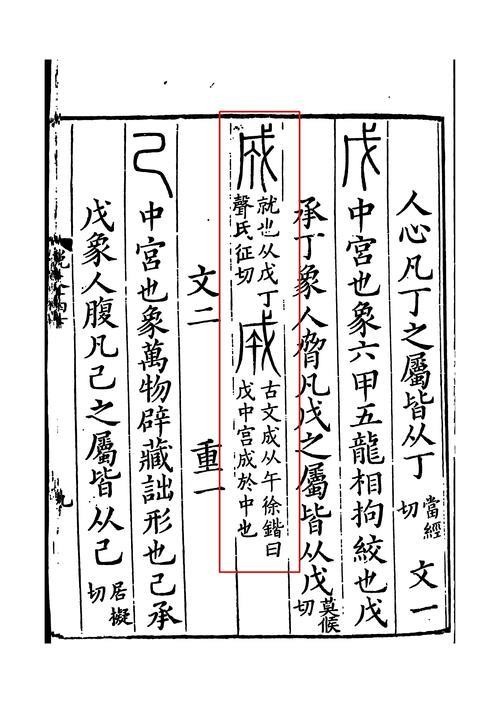 人心凡丁之屬皆从丁當經切 文一
戊中宮也象六甲五龍相拘絞也戊
承丁象人脅凡戊之屬皆从戊莫候切
成就也从戊丁聲氏征切 成古文成从午徐鍇曰戊中宮成於中也
文二 重一
己中宮也象萬物辟藏詘形也己承
戊象人腹凡己之屬皆从己居擬切